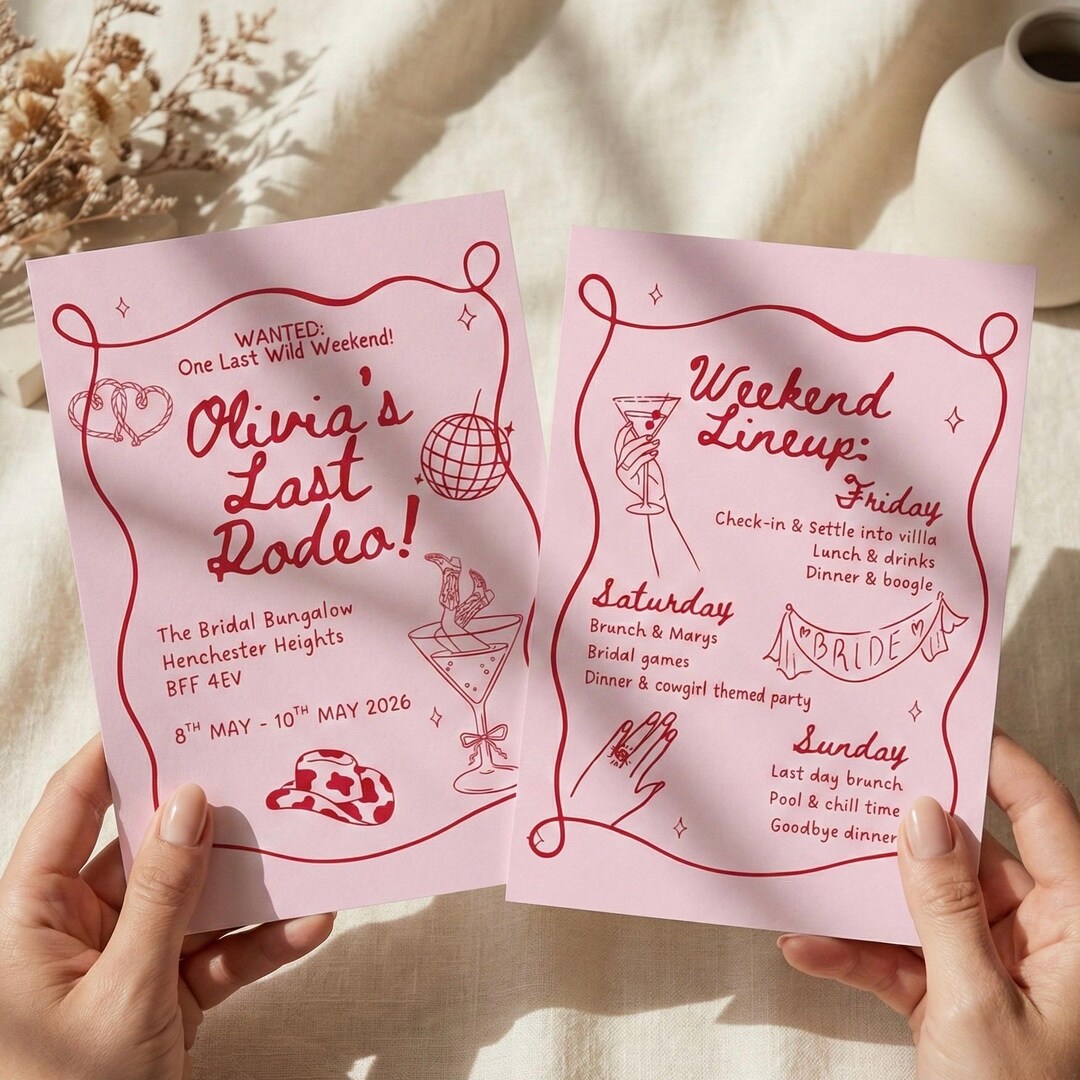 WANTED:
One Last Wild Weekend!
Olivia's
Last
Rodeo!
The Bridal Bungalow
Henchester Heights
BFF 4EV
8TH MAY - 10TH MAY 2026
Weekend
Lineup:
Friday
Check-in & Settle into villla
Lunch & drinks
Dinner & boogle
Saturday
Brunch & Marys
Bridal games
Dinner & cowgirl themed party
BRIDE
Sunday
Last day brunch
Pool & chill time
Goodbye dinner